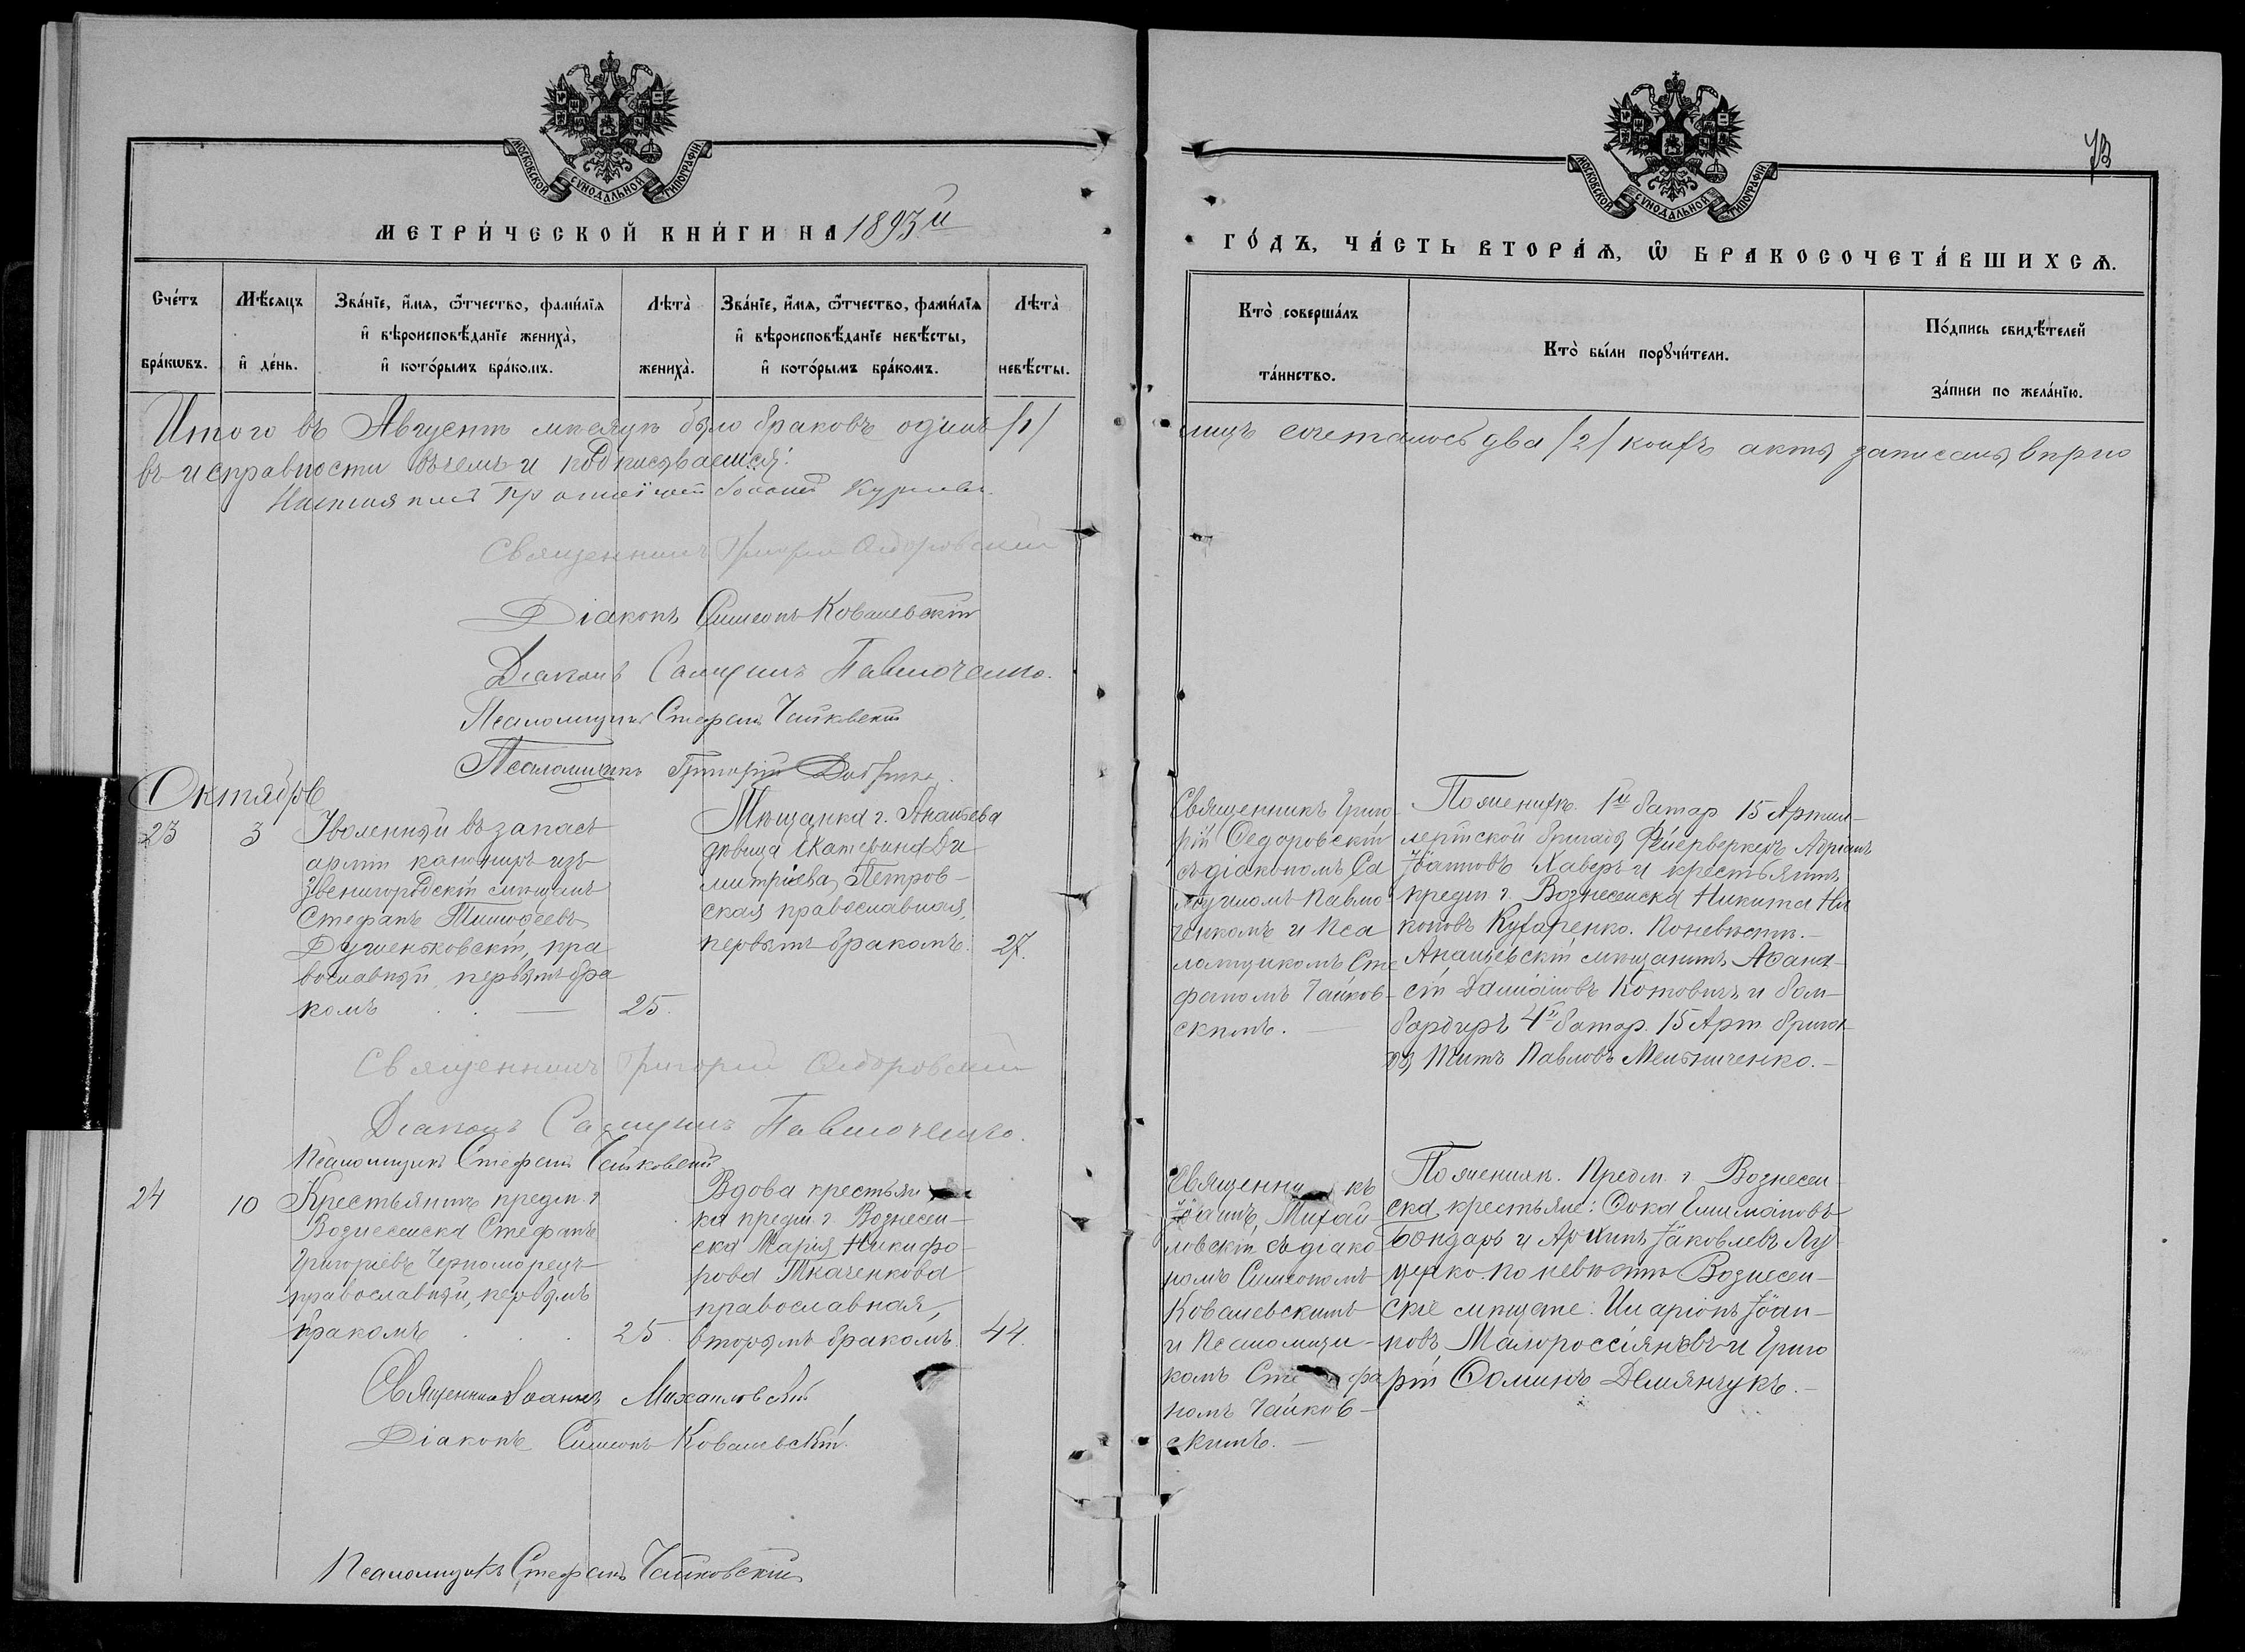 МОСКОВСКОЙ СѴНОДАЛЬНОЙ ТИПОГРАФІИ
МЕТРИ́ЧЕСКОЙ КНИ́ГИ НА 1893й
Сче́тъ бра́кѡвъ.
Мѣ́сяцъ и҆ де́нь.
Зва́нїе, и҆́мѧ, ѻ҆́тчество, фами́лїѧ
и҆ вѣроисповѣ́данїе жениха̀,
и҆ кото́рымъ бра́комъ.
Лѣта̀ жениха̀.
Зва́нїе, и҆́мѧ, ѻ҆́тчество, фами́лїѧ
и҆ вѣроисповѣ́данїе невѣ́сты,
и҆ кото́рымъ бра́комъ.
Лѣта̀ невѣ́сты.
Итого въ Августѣ мѣсяцѣ было браковъ одинъ /1/
въ исправности въ чемъ и подписываемся:
Священникъ Григорій Ѳедоровскій
Діаконъ Симеонъ Ковалевскій
Діаконъ Самуилъ Павлюченко.
Псаломщикъ Стефанъ Чайковскій
Псаломщикъ Григорій
Октябрь
23
3
Уволенный въ запасъ
арміи канониръ изъ
Звенигородскій мѣщанъ
Стефанъ Тимоѳеевъ
Душеньковскій, пра
вославный, первымъ бра
комъ
25.
Мѣщанка г. Ананьева
дѣвица Екатерина Ди
митріева Петров-
ская православная,
первымъ бракомъ.
27.
Священникъ Григорій Ѳедоровскій
Діаконъ Самуилъ Павлюченко.
Псаломщикъ Стефанъ Чайковскій
24
10
Крестьянинъ предм. г
Вознесенска Стефанъ
Григоріевъ Черноморецъ
православный, первымъ
бракомъ
25.
Вдова крестьян
ка предм. г Вознесен-
ска Марія Никифо-
рова Ткаченкова
православная,
вторымъ бракомъ.
44.
Священникъ Іоаннъ Михайловскій
Діаконъ Симеонъ Ковалевскій.
Псаломщикъ Стефанъ Чайковскій
МОСКОВСКОЙ СѴНОДАЛЬНОЙ ТИПОГРАФІИ
ГО́ДЪ, ЧА́СТЬ ВТОРА́Ѧ, Ѽ БРАКОСОЧЕТА́ВШИХСѦ.
Кто̀ соверша́лъ
та́инство.
Кто̀ бы́ли порꙋчи́тели.
По́дпись свидѣ́телей
за́писи по жела́нїю.
лицъ сочеталось два /2/ коихъ акты записаны
Священникъ Григо
рій Ѳедоровскій
съ діакономъ Са
муиломъ Павлю
ченкомъ и Пса
ломщикомъ Сте
фаномъ Чайков-
скимъ.
По женихѣ. 1й батар 15 Артил-
лерійской бригады Фейерверкеръ Адріанъ
Іоанновъ Хаверъ и крестьянинъ
предм г. Вознесенска Никита Ни
коновъ Кухаренко. По невѣстѣ.-
Ананьевскій мѣщанинъ Аѳана-
сій Даміановъ Котовичъ и бом-
бардиръ 4й батар. 15 Арт. брига
ды Титъ Павловъ Мельниченко.-
Священникъ
Іоаннъ Михай
ловскій съ діако
номъ Симеономъ
Ковалевскимъ
и Псаломщи-
комъ Стефа
номъ Чайков-
скимъ.
По женихѣ. Предм. г Вознесен-
ска крестьяне: Ѳока
Бондарь и Архипъ Іаковлевъ Лу
ценко. по невѣстѣ Вознесен-
скіе мѣщане: Иларіонъ Іоан-
новъ Малороссіяневъ и Григо
рій Ѳоминъ Демянчукъ.-